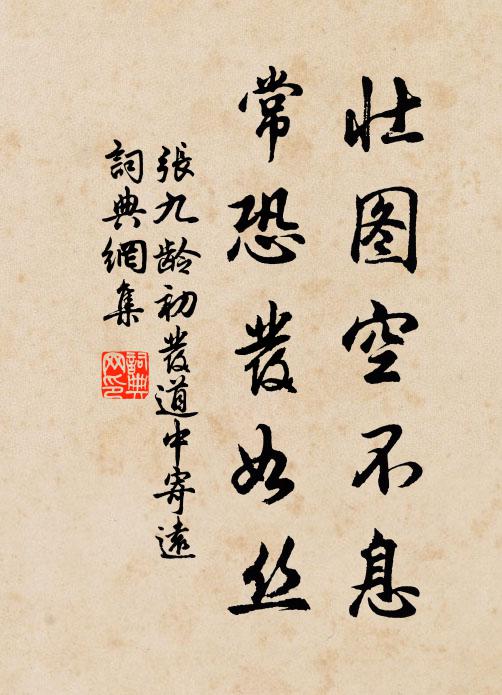 壮图空不息
常恐發如丝
張九龄初發道中寄遠
詞典網集
詞典网印